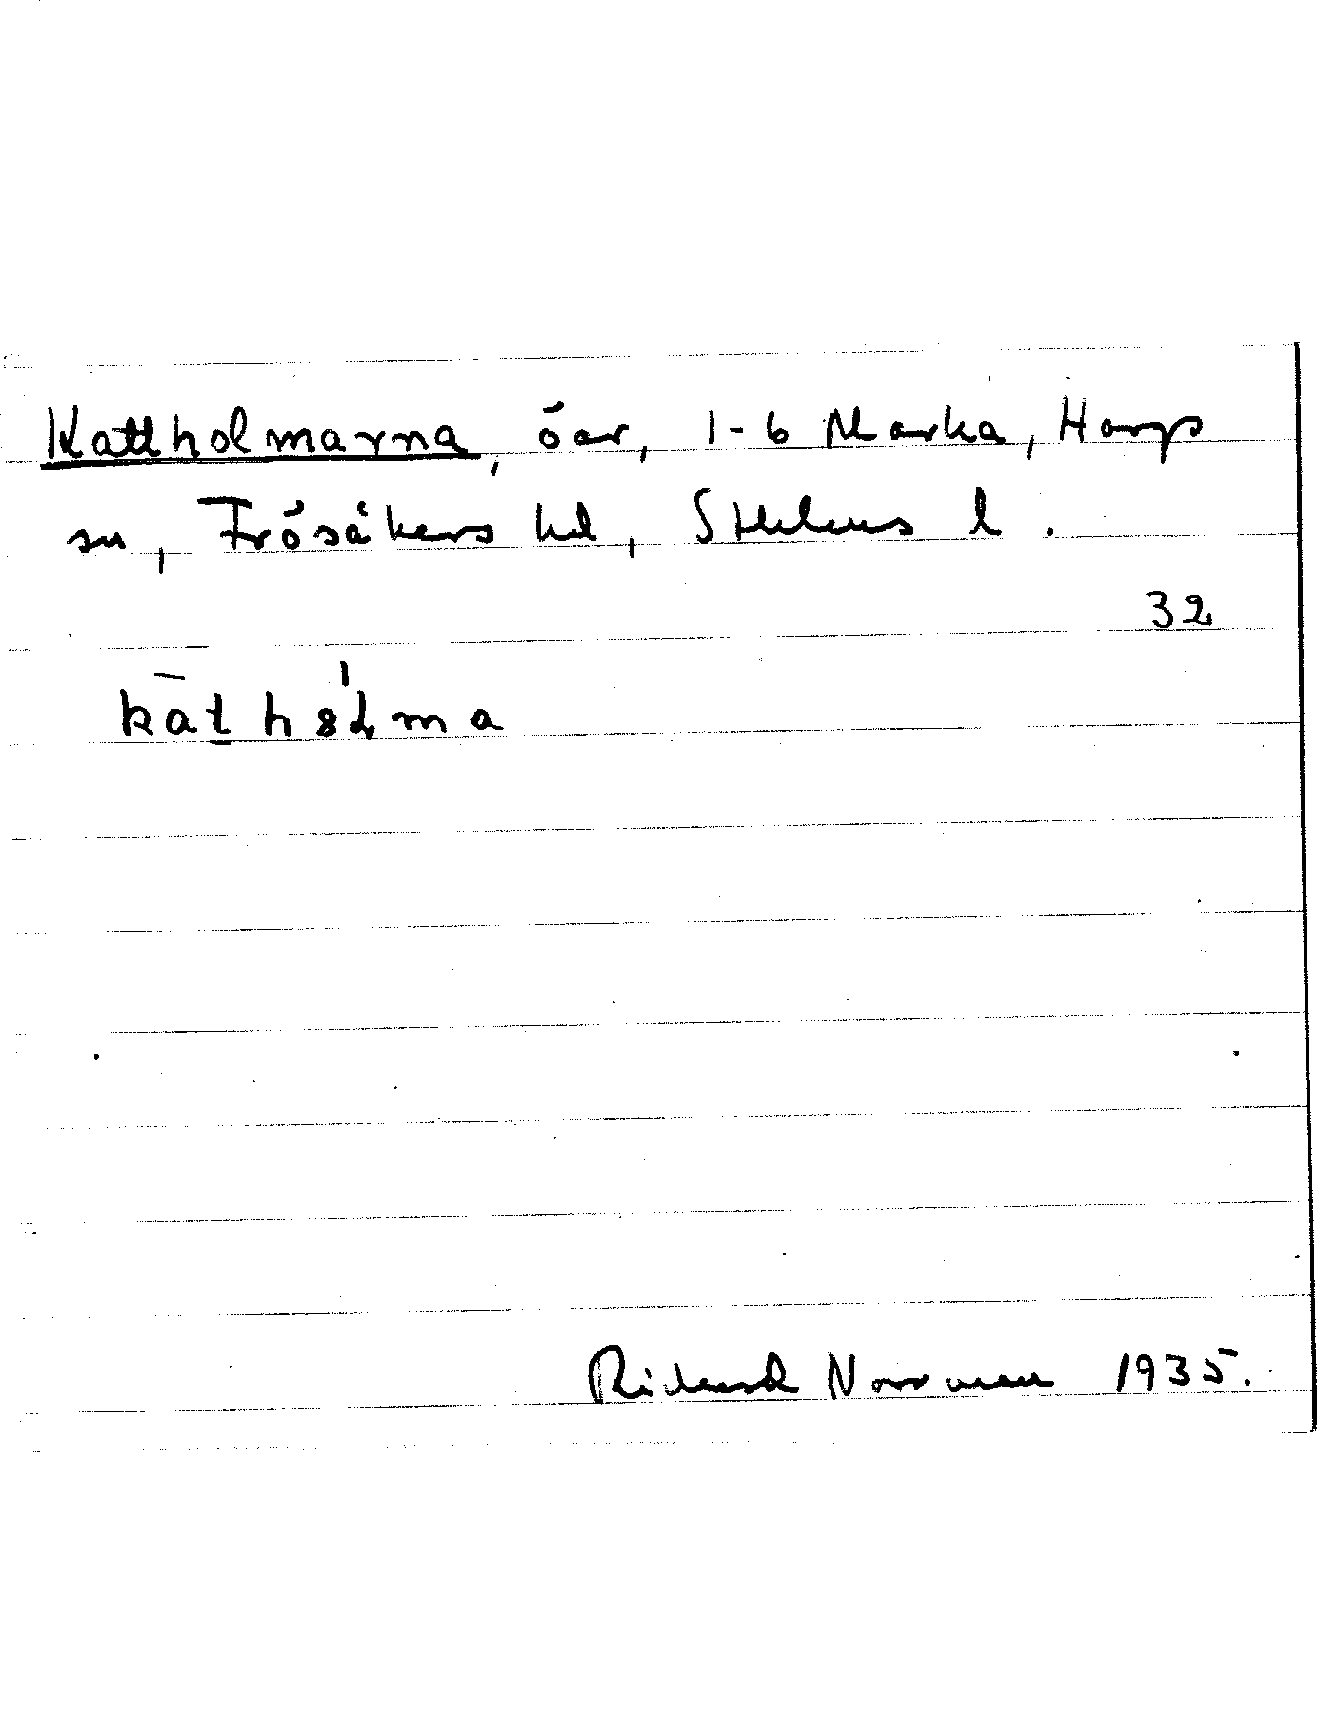 Kattholmarna, öar, 1-6 Marka, Hargs
sn, Frösåkers hd, Sthlms l.
32
kat hålma
Rickard Norrman 1935.